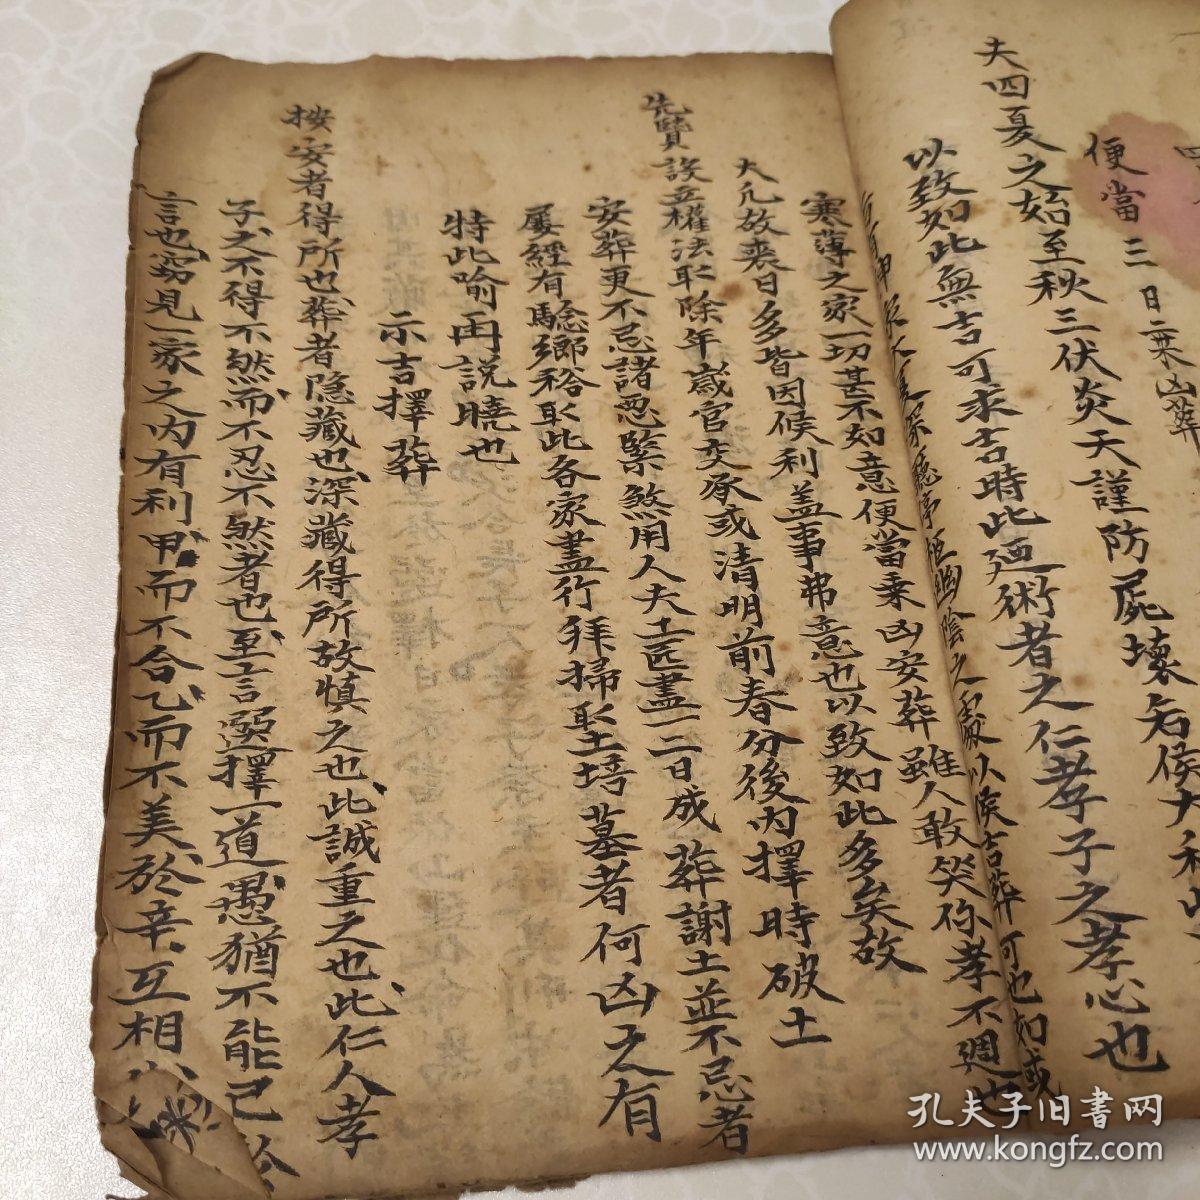 便當三日乗凶葬
夫四夏之始至秋三伏炎天謹防屍壊若侯大利
以致如此無吉可求吉時此廼術者之仁孝子之孝心也
之處以俟吉葬可也如或
寒薄之家一切甚不如意便當乗凶安葬雖人敢笑你孝不週也
大凢放喪日多皆因候利盖事弗意也以致如此多矣故
先賢設立權法耴除年嵗官交承或清明前春分後内擇時破土
安葬更不忌諸惡緊煞用人夫土匠盡一二日成葬謝土並不忌者
屡經有騐鄉裕耴此各家盡行拜掃耴土塝墓者何凶之有
特此喻再説曉也
示吉擇葬
按安者得所也葬者隐藏也深藏得所故慎之也此誠重之也此仁人孝
子之不得不然而不忍不然者也至言選擇一道愚猶不能已於
言也窃見一家之内有利甲而不合乙而不美於辛互相
孔夫子旧書网
www.kongfz.com